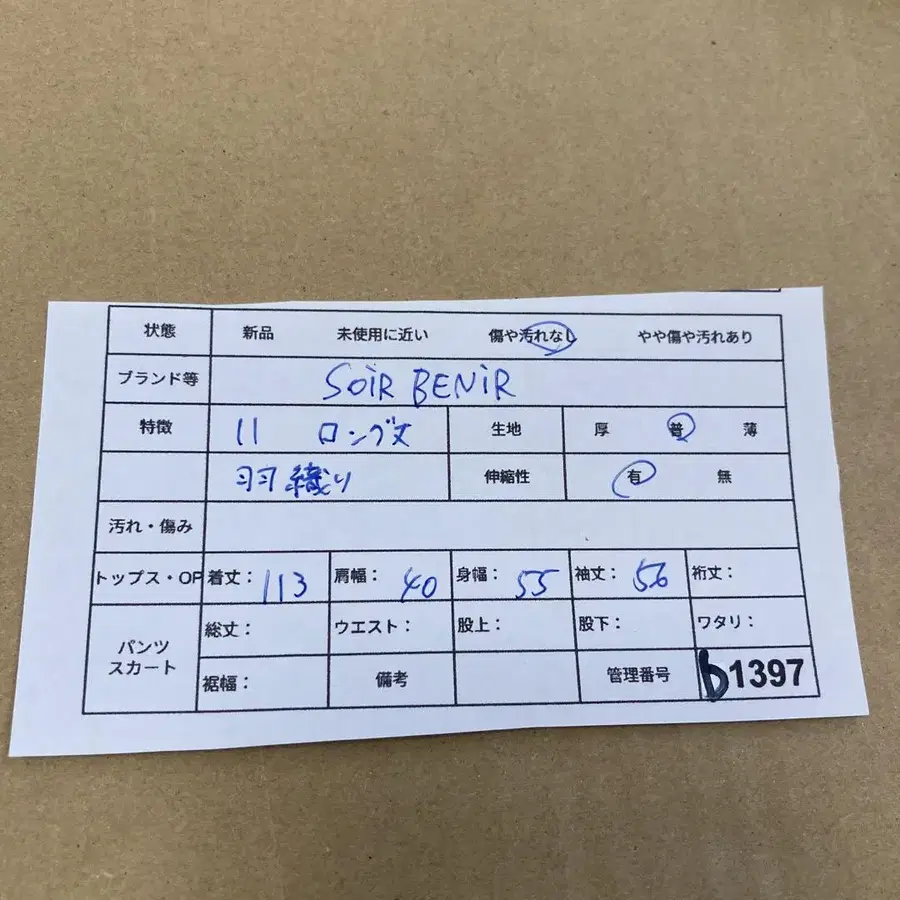 状態 新品 未使用に近い 傷や汚れなし やや傷や汚れあり
ブランド等 SOiR BENiR
特徴 11 ロング丈 生地 厚 普 薄
羽織り 伸縮性 有 無
汚れ・傷み
トップス・OP 着丈： 113 肩幅： 40 身幅： 55 袖丈： 56 裄丈：
パンツ スカート 総丈： ウエスト： 股上： 股下： ワタリ：
裾幅： 備考 管理番号 b1397